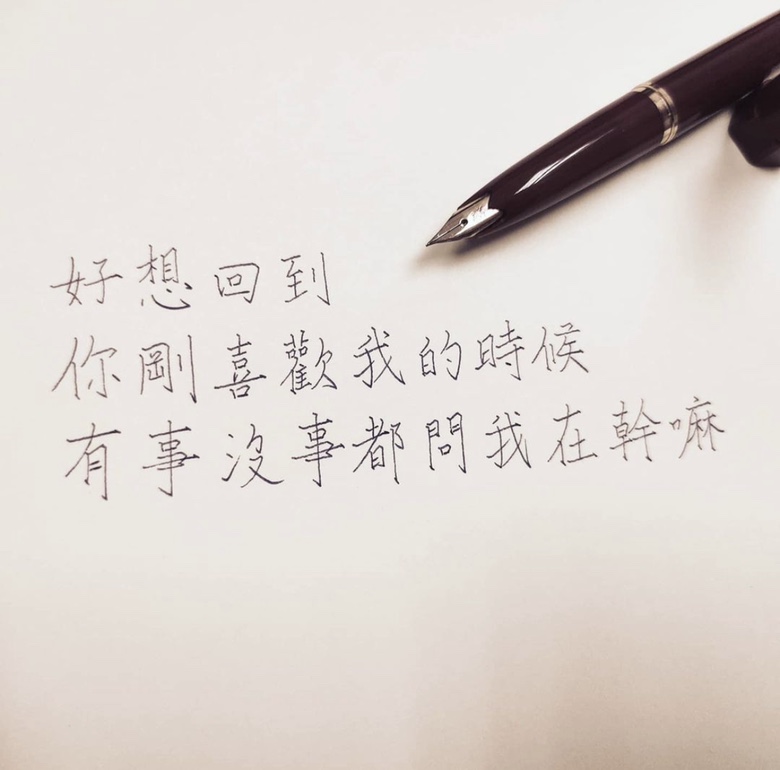 好想回到
你剛喜歡我的時候
有事沒事都問我在幹嘛